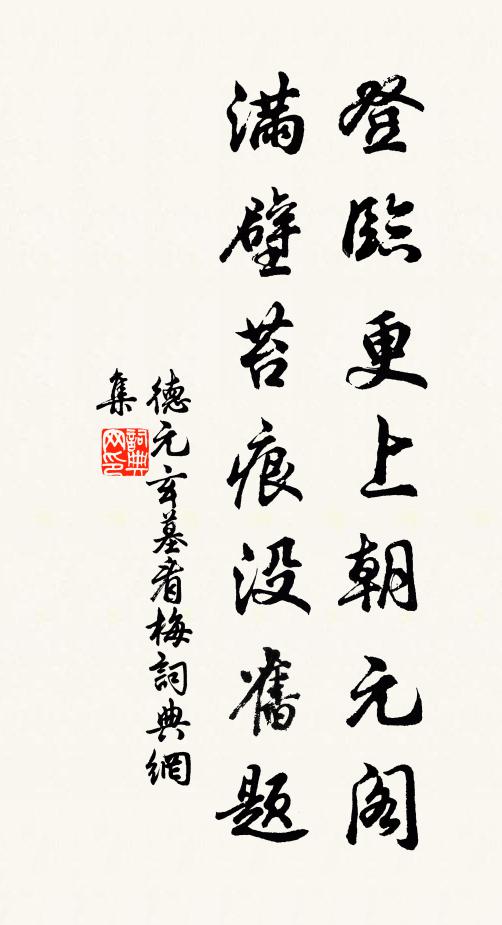 登臨更上朝元阁
滿壁苔痕没舊题
德元玄墓看梅詞典網
集
詞典
网印